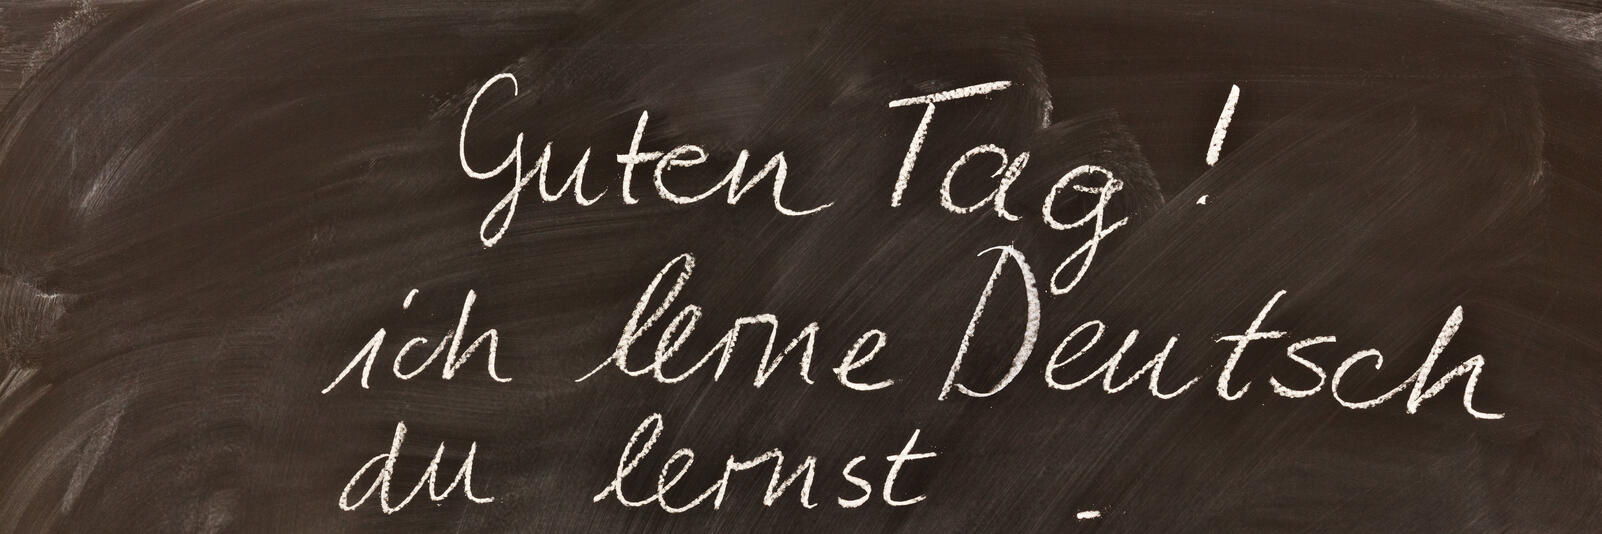 Guten Tag!
ich lerne Deutsch
du lernst